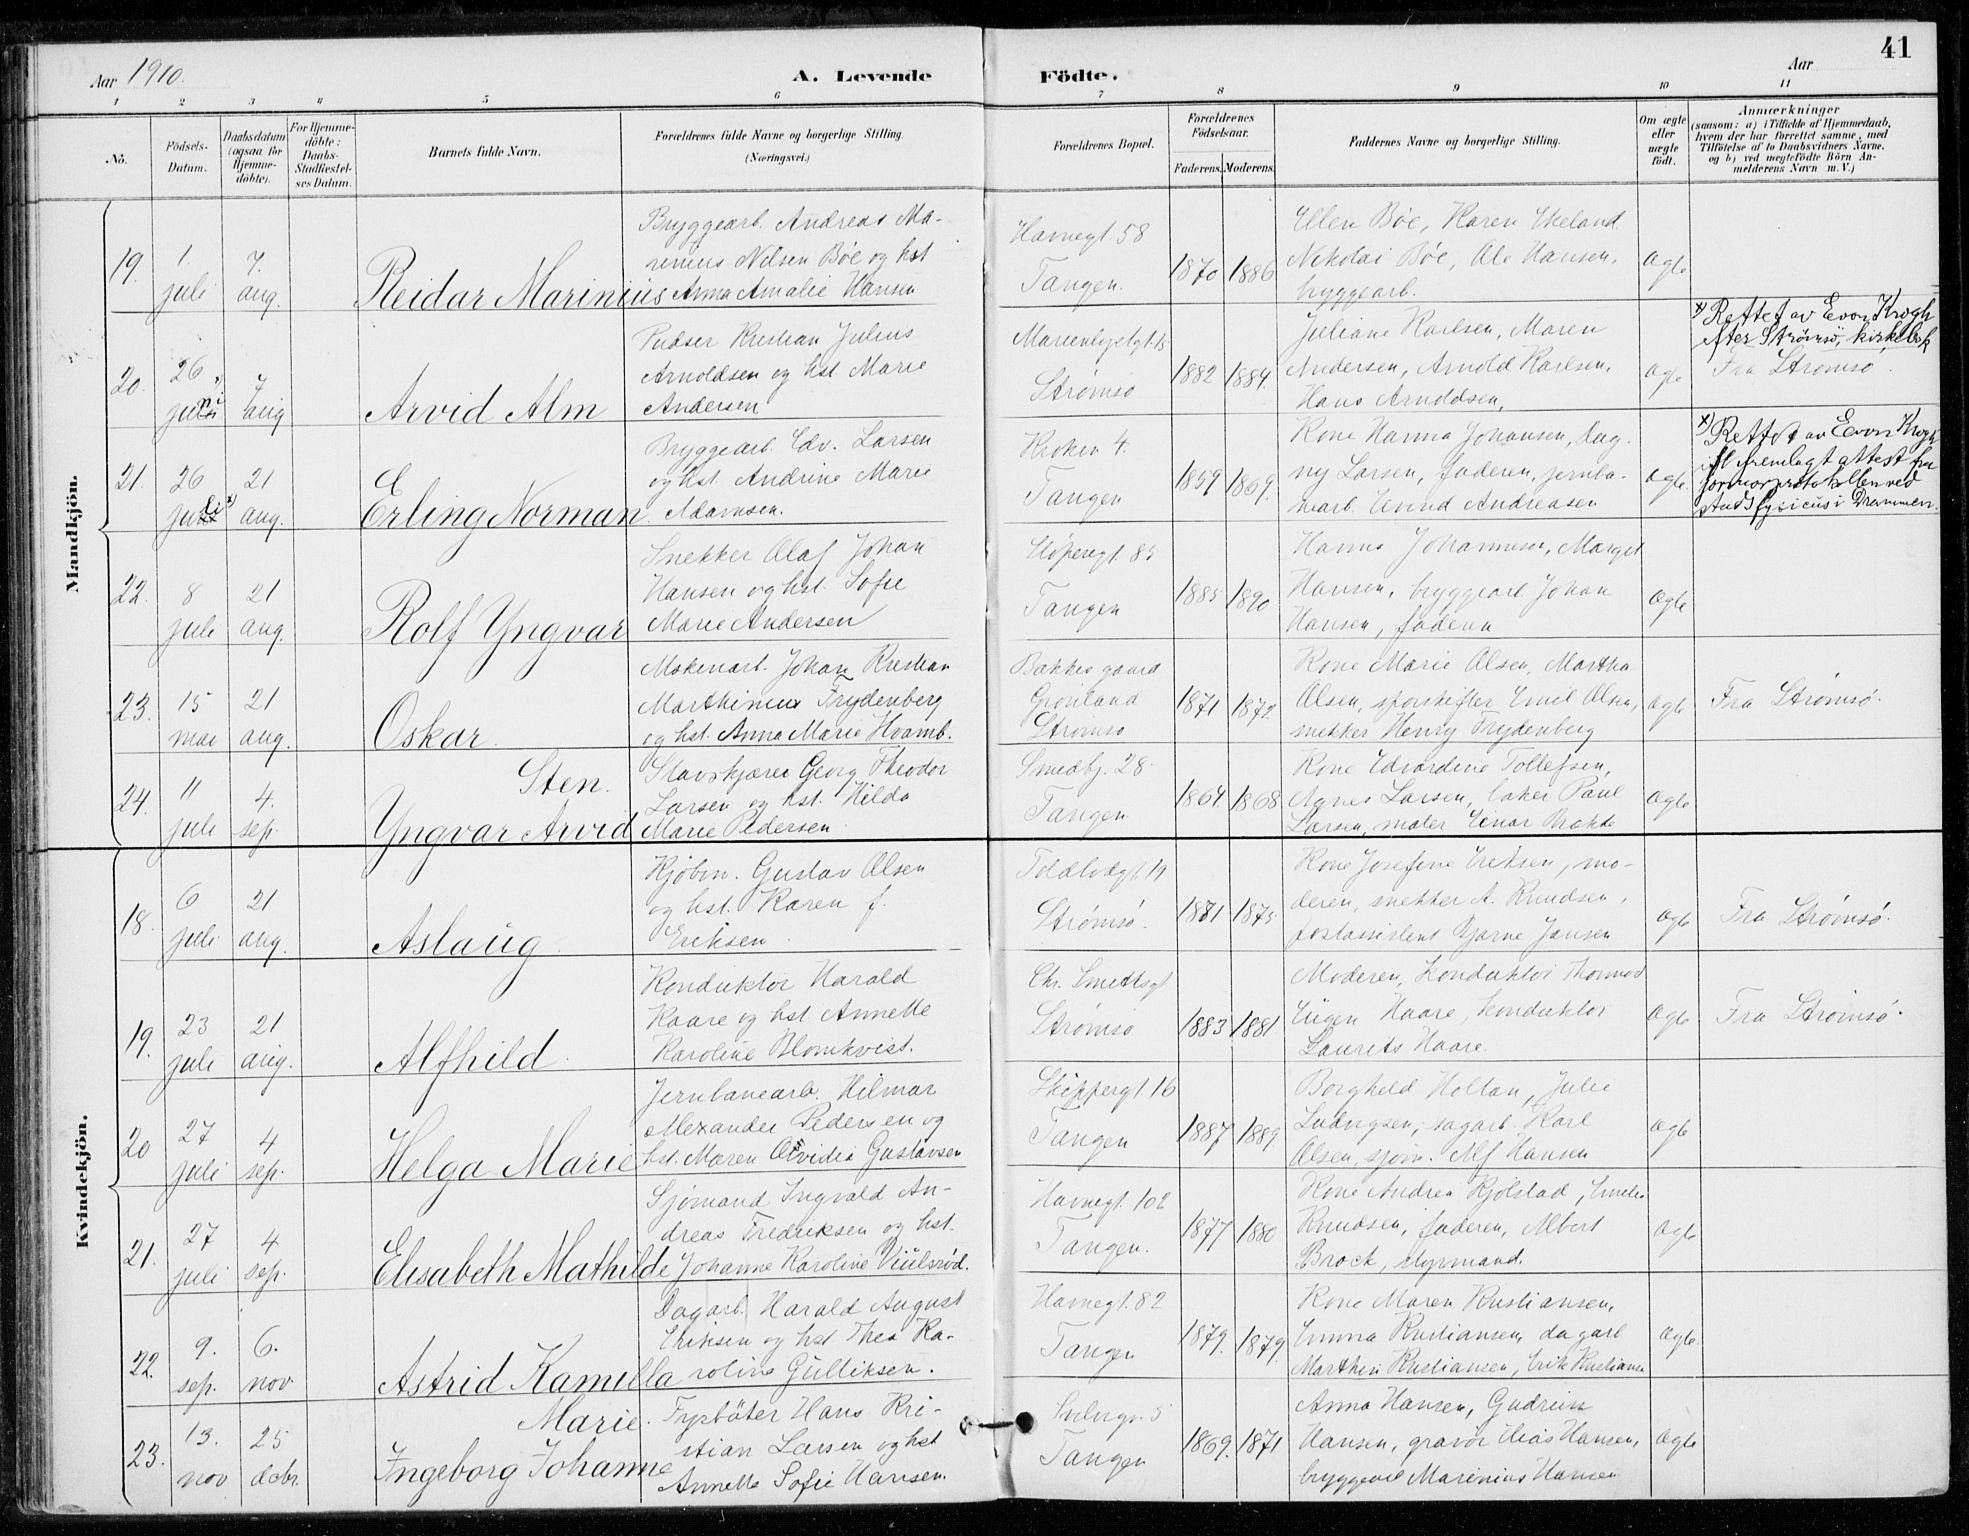 41
Aar 1910.
A. Levende
Födte.
Aar
1 2 3 4 5 6 7 8 9 10 11
No.
Födsels-
Datum.
Daabsdatum
(ogsaa for
Hjemme-
döbte).
For Hjemme-
döbte:
Daabs-
Stadfæstel-
ses Datum.
Barnets fulde Navn.
Forældrenes fulde Navne og borgerlige Stilling.
(Næringsvei.)
Forældrenes Bopæl.
Forældrenes
Födselsaar.
Faderens. Moderens.
Faddernes Navne og borgerlige Stilling.
Om ægte
eller
uægte
födt.
Anmærkninger
(saasom: a) i Tilfælde af Hjemmedaab,
hvem der har forrettet samme, med
Tilföielse af to Daabsvidners Navne,
og b) ved uægtefödte Börn An-
melderens Navn m. V.)
Mandkjön.
19.
1.
juli
7.
aug.
Reidar Marinius
Bryggearb. Andreas Ma-
rinius Nilsen Böe og hst
Anna Amalie Hansen
Havnegt. 58
Tangen.
1870 1886
Ellen Böe, Karen Ekeland
Nikolai Böe, Ole Hansen,
bryggearb.
Ægte
20.
26
juni x)
7
aug
Arvid Alm
Pudser Kristian Julius
Arnoldsen og hst Marie
Andersen
Marienlystgt.
Strömsö
1882 1884.
Juliane Karlsen, Maren
Andersen, Arnold Karlsen,
Hans Arnoldsen,
Ægte
x) Rettet av Evon Krogh
efter Strømsø kirkebok
Fra Strömsö.
21.
26
juli x)
21
aug.
Erling Norman
Bryggearb. Edv. Larsen
og hst. Andrine Marie
Adamsen.
Kroken 4.
Tangen
1859 1869.
Kone Hanna Johansen, Dag-
ny Larsen, faderen, jernba-
nearb. Eivind Andreasen
Ægte.
x) Rettet av Evon Krogh
ifl fremlagt attest fra
jormorprotokollen ved
Stadsfysicus i Drammen.
22.
8
juli
21
aug.
Rolf Yngvar
Snekker Olaf Johan
Hansen og hst. Sofie
Marie Andersen
Støperegt. 85
Tangen
1885 1890
Hanna Johannesen, Marget
Hansen, bryggearb Johan
Hansen, faderen
Ægte
23.
15
mai
21
aug.
Oskar
Johan Kristian
Marthinius Frydenberg
og hst. Anna Marie Hvamb.
Bakkes gaard
Grönland
Strömsö
1871 1872
Kone Marie Olsen, Martha
Olsen, sporskifter Emil Olsen,
snekker Henry Frydenberg
Ægte
Fra Strömsö.
24.
11
juli
4.
sep.
Sten.
Yngvar Arvid
Stavskjærer Georg Theodor
Larsen og hst. Hilda
Marie Pedersen.
Smedbg. 28.
Tangen
1864 1868
Kone Edvardine Tollefsen,
Agnes Larsen, baker Paul
Larsen, maler Einar
Ægte
Kvindekjön.
18.
6
juli
21
aug.
Aslaug
Kjöbm. Gustav Olsen
og hst. Karen f.
Eriksen.
Toldbodgt. 19
Strömsö.
1881 1875
Kone Josefine Eriksen, mo-
deren, snekker A. Knudsen,
postassistent Bjarne Jansen
Ægte
Fra Strömsö.
19.
23
juli
21
aug.
Alfhild
Konduktör Harald
Haare og hst Annette
Karoline Blomkvist.
Chr. Smethsgt
Strömsö
1883 1881
Moderen, konduktör Thormod
Eugen Haare, konduktör
Laurits Haare.
Ægte
Fra Strömsö.
20
27
juli
4
sep.
Helga Marie
Jernbanearb. Hilmar
Alexander Pedersen og
hst. Maren Gustavsen
Skippergt. 16
Tangen
1887 1889
Borghild Holtan, Julie
Ludvigsen, sagarb. Karl
Olsen, sjöm. Alf Hansen
Ægte
21.
27
juli
4
sep.
Elisabeth Mathilde
Sjömand Ingvald An-
dreas Fredriksen og hst.
Johanne Karoline Viulsröd.
Havnegt. 102
Tangen.
1877 1880
Kone Andrea Kjölstad, Emelie
Knudsen, faderen, Albert
Brock, styrmand.
Ægte
22.
9.
sep.
6.
nov
Astrid Kamilla
Dagarb. Harald August
Eriksen og hst Thea Ka-
roline Gulliksen.
Havnegt. 82
Tangen
1879. 1879.
Kone Maren Kristiansen,
Emma Kristiansen, dagarb
Marthin Kristiansen, Erik Kristiansen
Ægte.
23.
13.
nov
25
decbr.
Marie.
Ingeborg Johanne
Fyrböter Hans Kri-
stian Larsen og hst
Annette Sofie Hansen.
5
Tangen
1869. 1871
Anna Hansen, Gudrun
Hansen, gravör Elias Hansen,
bryggearb Marinius Hansen
Ægte